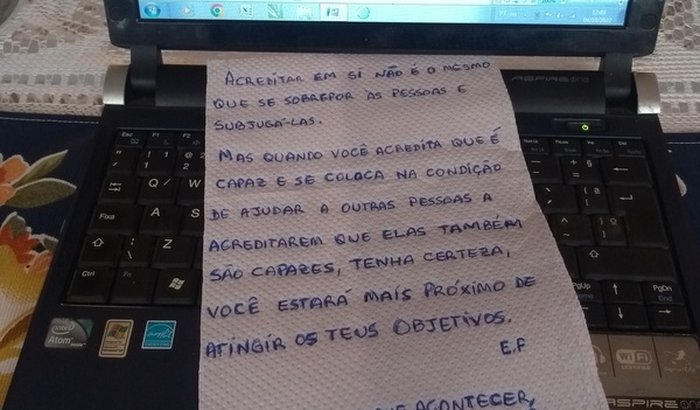 ACREDITAR EM SI NÃO É O MESMO
QUE SE SOBREPOR ÀS PESSOAS E
SUBJUGÁ-LAS.
MAS QUANDO VOCÊ ACREDITA QUE É
CAPAZ E SE COLOCA NA CONDIÇÃO
DE AJUDAR A OUTRAS PESSOAS A
ACREDITAREM QUE ELAS TAMBÉM
SÃO CAPAZES, TENHA CERTEZA,
VOCÊ ESTARÁ MAIS PRÓXIMO DE
ATINGIR OS TEUS OBJETIVOS.
E.F
ACONTECER,
ASPIRE one
Esc F1 F2
! 1 2
Q / W
Fixa A S
Z
Ctrl Fn
intel Atom
Ins Del
PgUp
PgDn
Home End
Wi Fi
ASPIRE